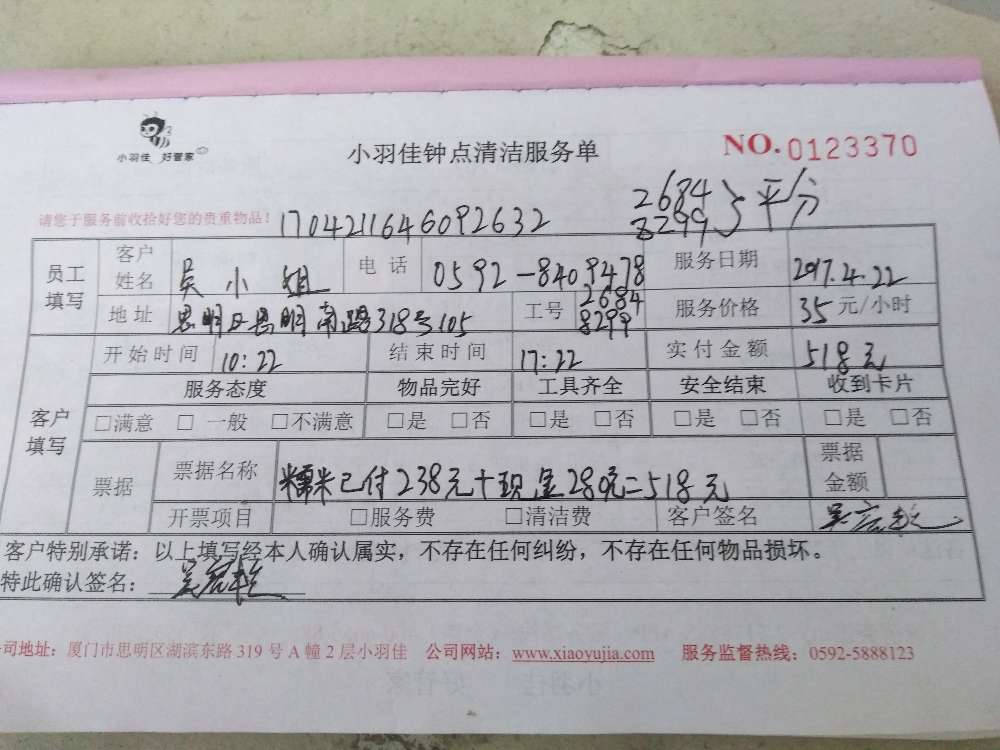 小羽佳 好管家
小羽佳钟点清洁服务单
NO.0123370
请您于服务前收拾好您的贵重物品!
1704211646092632
2684
8299 平分
员工填写 客户姓名 吴小姐 电话 0592-8409478 服务日期 2017.4.22
地址 思明区思明南路318号105 工号 2684 8299 服务价格 35元/小时
客户填写 开始时间 10:22 结束时间 17:22 实付金额 518元
服务态度 物品完好 工具齐全 安全结束 收到卡片
□满意 □一般 □不满意 □是 □否 □是 □否 □是 □否 □是 □否
票据 票据名称 糯米已付238元+现金280元=518元 票据金额
开票项目 □服务费 □清洁费 客户签名
客户特别承诺：以上填写经本人确认属实，不存在任何纠纷，不存在任何物品损坏。
特此确认签名：
司地址：厦门市思明区湖滨东路319号A幢2层小羽佳 公司网站：www.xiaoyujia.com 服务监督热线：0592-5888123